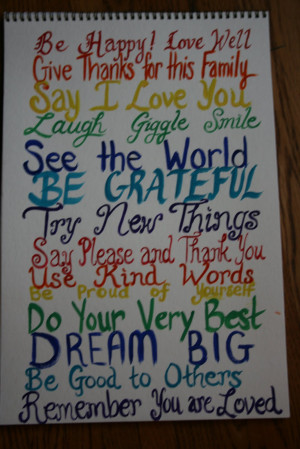 Be Happy! Love Well
Give Thanks for this Family
Say I Love You
Laugh Giggle Smile
See the World
BE GRATEFUL
Try New Things
Say Please and Thank You
Use Kind Words
Be Proud of Yourself
Do Your Very Best
DREAM BIG
Be Good to Others
Remember You are Loved